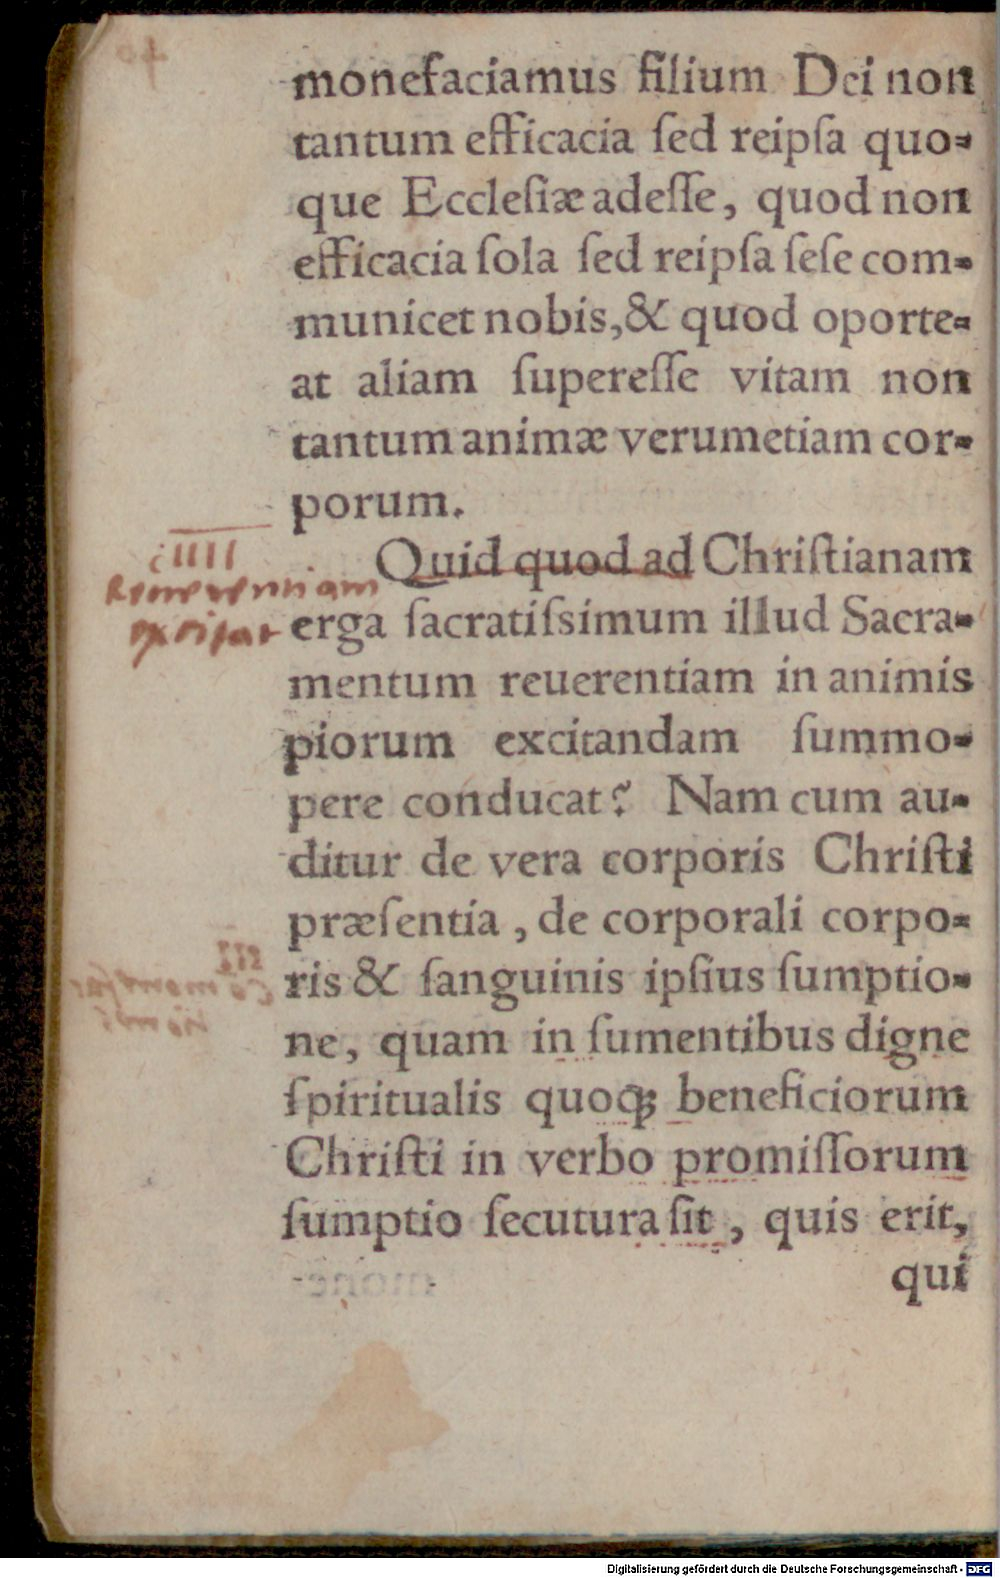 monefaciamus filium Dei non
tantum efficacia ſed reipſa quo-
que Eccleſiæ adeſſe, quod non
efficacia ſola ſed reipſa ſeſe com-
municet nobis, & quod oporte-
at aliam ſupereſſe vitam non
tantum animæ verumetiam cor-
porum.
Quid quod ad Chriſtianam
iiii
Reuerentiam
excitat
erga ſacratiſsimum illud Sacra-
mentum reuerentiam in animis
piorum excitandam ſummo-
pere conducat? Nam cum au-
ditur de vera corporis Chriſti
præſentia, de corporali corpo-
ris & ſanguinis ipſius ſumptio-
ne, quam in ſumentibus digne
ſpiritualis quoq; beneficiorum
Chriſti in verbo promiſſorum
ſumptio ſecutura ſit, quis erit,
qui
Digitalisierung gefördert durch die Deutsche Forschungsgemeinschaft - DFG